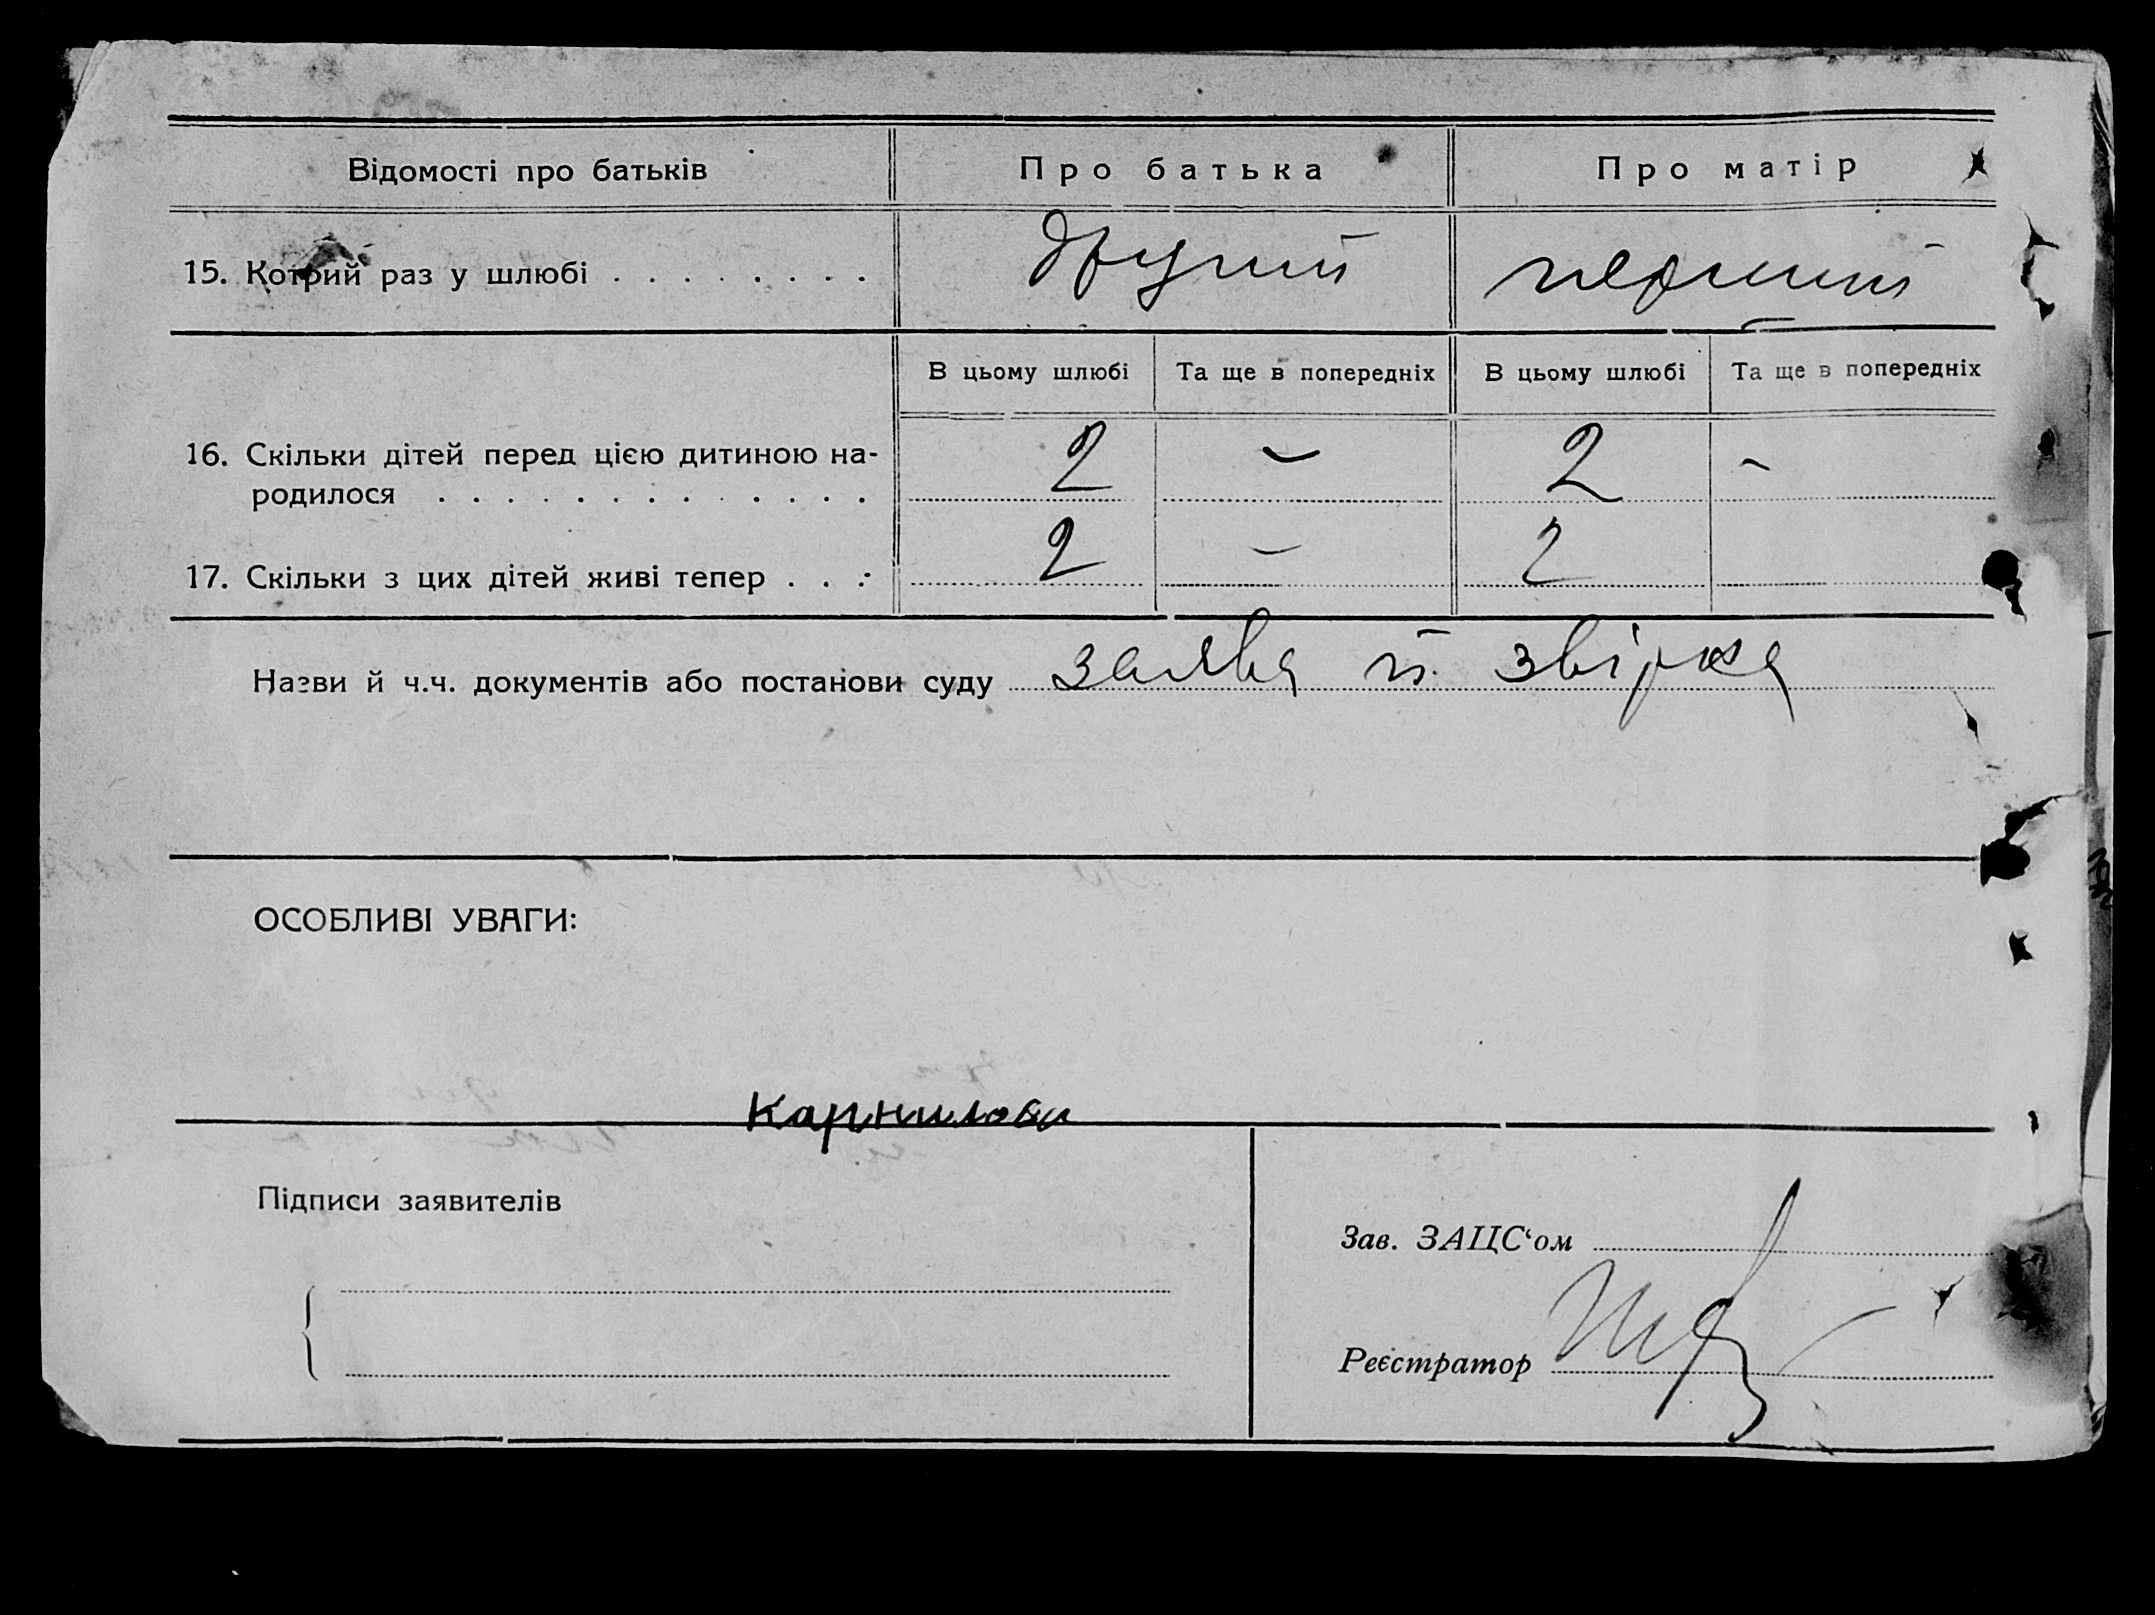 Відомості про батьків Про батька Про матір
15. Котрий раз у шлюбі . . . . . . . . другий перший
В цьому шлюбі Та ще в попередніх В цьому шлюбі Та ще в попередніх
16. Скільки дітей перед цією дитиною на- 2 – 2 –
родилося . . . . . . . . . . . . . .
17. Скільки з цих дітей живі тепер . . . 2 – 2
Назви й ч.ч. документів або постанови суду заява й звірка
ОСОБЛИВІ УВАГИ:
Карнилова
Підписи заявителів
Зав. ЗАЦС‘ом
Реєстратор